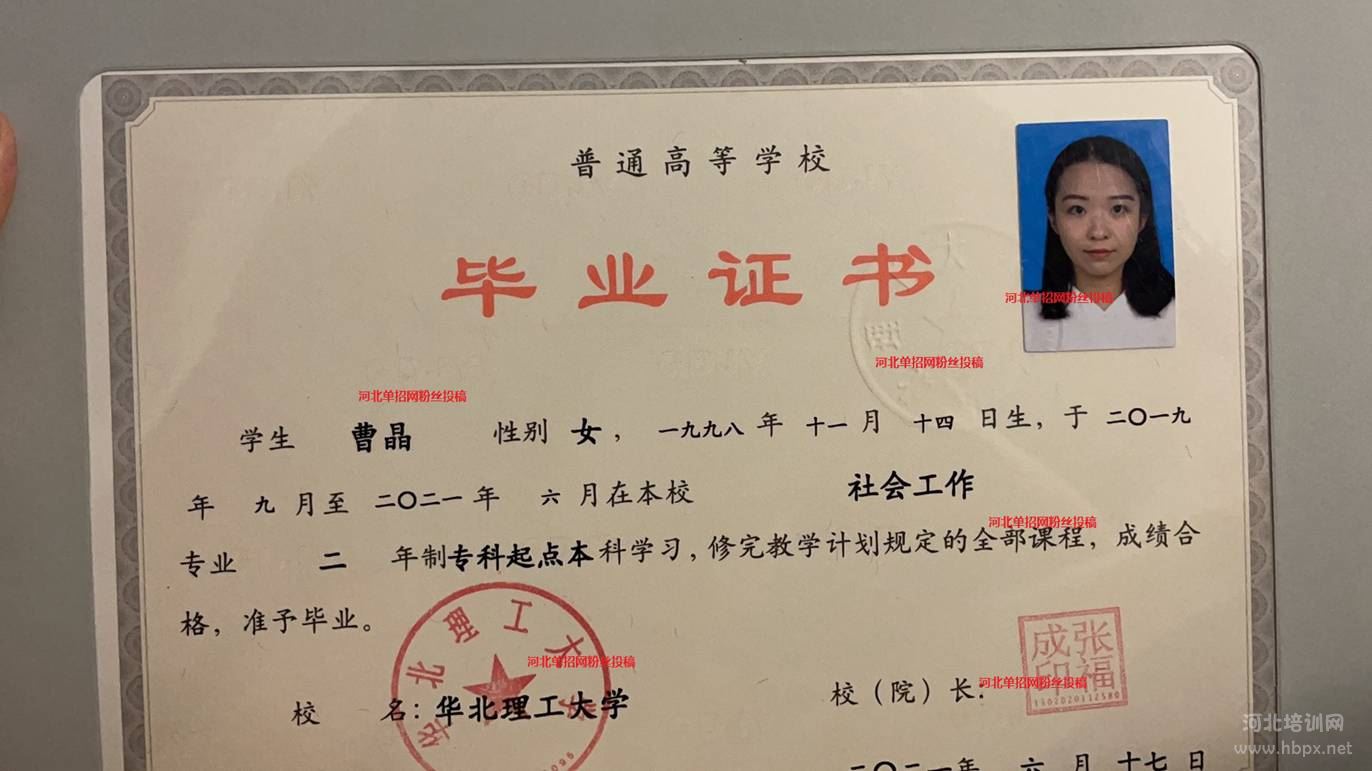 普通高等学校
毕业证书
河北单招网粉丝投稿
河北单招网粉丝投稿
河北单招网粉丝投稿
学生 曹晶 性别 女，一九九八年 十一月 十四 日生，于 二〇一九
年 九 月至 二〇二一年 六 月在本校 社会工作
河北单招网粉丝投稿
专业 二 年制专科起点本科学习，修完教学计划规定的全部课程，成绩合
格，准予毕业。
华北理工大学
河北单招网粉丝投稿
校 名：华北理工大学
校（院）长：
张福成印
河北单招网粉丝投稿
二〇二一年 六 月 十七 日
河北培训网
www.hbpx.net